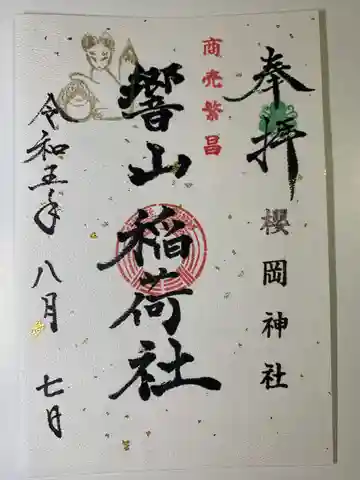 奉拝
櫻岡神社
商売繁昌
響山稲荷社
令和五年八月七日